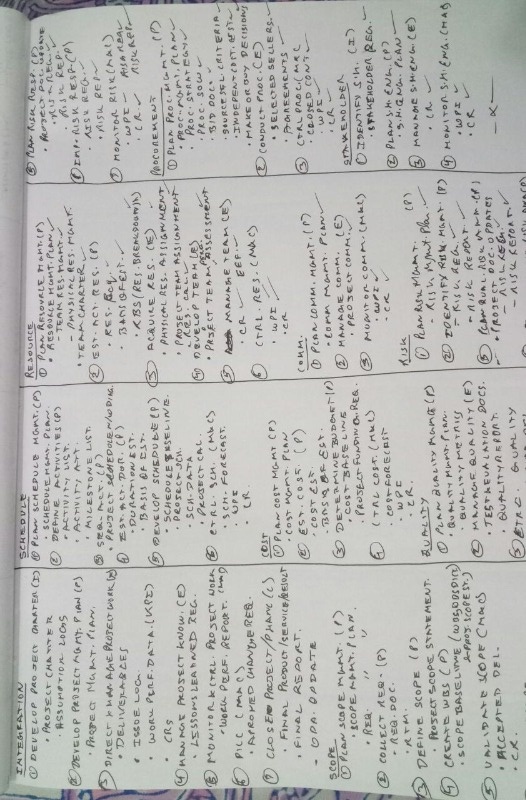 INTEGRATION
① DEVELOP PROJECT CHARTER (I)
• PROJECT CHARTER
ASSUMPTION LOGS
② DEVELOP PROJECT MGMT. PLAN (P)
• PROJECT MGMT. PLAN.
③ DIRECT & MANAGE PROJECT WORK
• DELIVERABLES
• ISSUE LOG
• WORK PERF. DATA.
• CRS
④ MANAGE PROJECT KNOW. (E)
• LESSONS LEARNED REG.
⑤ MONITOR & CTRL. PROJECT WORK
WORK PERF. REPORT.
⑥ PICC (M&C)
• APPROVED CHANGE REQ.
⑦ CLOSE PROJECT/PHASE (C)
• FINAL PRODUCT/SERVICE/RESULT
• FINAL REPORT.
- OPA. UPDATE
SCOPE
① PLAN SCOPE MGMT. (P)
• SCOPE MGMT. PLAN.
• REQ. " "
② COLLECT REQ. (P)
• REQ. DOC.
• RTM
③ DEFINE SCOPE (P)
• PROJECT SCOPE STATEMENT.
④ CREATE WBS (P)
• SCOPE BASELINE
⑤ VALIDATE SCOPE (M&C)
• ACCEPTED DEL.
• C.R.
SCHEDULE
① PLAN SCHEDULE MGMT. (P)
• SCHEDULE MGMT. PLAN.
② DEFINE ACTIVITIES (P)
• ACTIVITY LIST.
ACTIVITY ATT.
• MILESTONE LIST.
③ SEQ. ACT. (P)
• PROJECT SCHEDULE N/W DIAG.
④ EST. ACT. DUR. (P)
• DURATION EST.
BASIS OF EST.
⑤ DEVELOP SCHEDULE (P)
• SCHEDULE BASELINE.
PROJECT SCH.
SCH. DATA
PROJECT CAL.
⑥ CTRL. SCH. (M&C)
• SCH. FORECAST.
WPI
CR
COST
① PLAN COST MGMT (P)
• COST MGMT. PLAN
② EST. COST. (P)
• COST EST.
BASIS OF EST.
③ DETERMINE BUDGET (P)
• COST BASELINE
PROJECT FUNDING REQ.
④ CTRL COST. (M&C)
• COST FORECAST
• WPI
• CR
QUALITY
① PLAN QUALITY MGMT (P)
• QUALITY MGMT. PLAN.
• QUALITY METRICS
② MANAGE QUALITY (E)
• TEST & EVALUATION DOCS.
• QUALITY REPORT.
③ CTRL QUALITY
RESOURCE
① PLAN RESOURCE MGMT. (P)
• RESOURCE MGMT. PLAN
- TEAM RES. MGMT.
- PHYSICAL RES. MGMT.
• TEAM CHARTER
② EST. ACT. RES. (P)
• RES. REQ.
• BASIS OF EST.
• RBS (RES. BREAKDOWN)
③ ACQUIRE RES. (E)
• PHYSICAL RES. ASSIGNMENT
• PROJECT TEAM ASSIGNMENT
• RES. CAL.
④ DEVELOP TEAM (E)
• PROJECT TEAM PERF. ASSESSMENT
⑤ MANAGE TEAM (E)
• CR
⑥ CTRL. RES. (M&C)
• WPI
• CR
COMM
① PLAN COMM. MGMT. (P)
• COMM MGMT. PLAN
② MANAGE COMM. (E)
• PROJECT COMM.
③ MONITOR COMM. (M&C)
• WPI
• CR
RISK
① PLAN RISK MGMT. (P)
• RISK MGMT. PLAN
② IDENTIFY RISK MGMT. (P)
- RISK REG.
- RISK REPORT
③ (P)
• PROJECT DOC. UPDATES
- RISK REG.
- RISK REPORT
⑤ PLAN RISK RESP. (P)
• RISK REG.
• RISK REP.
⑥ IMP. RISK RESP. (P)
• RISK REG.
• RISK REP.
⑦ MONITOR RISK (M&C)
• WPI
• CR
PROCUREMENT
① PLAN PROC. MGMT. (P)
• PROC. MGMT. PLAN
• PROC. STRATEGY
• PROC. SOW
• BID DOC.
• SOURCE SEL. CRITERIA
• INDEPEN. COST. EST.
• MAKE OR BUY DECISIONS
② CONDUCT PROC. (E)
• SELECTED SELLERS.
• AGREEMENTS
③ CTRL PROC. (M&C)
• CLOSED CONT.
• WPI
• CR
STAKEHOLDER
① IDENTIFY S.H. (I)
• STAKEHOLDER REG.
② PLAN S.H. ENG. (P)
• S.H. ENG. PLAN
③ MANAGE S.H. ENG. (E)
• CR
④ MONITOR S.H. ENG. (M&C)
• WPI
• CR
— x —